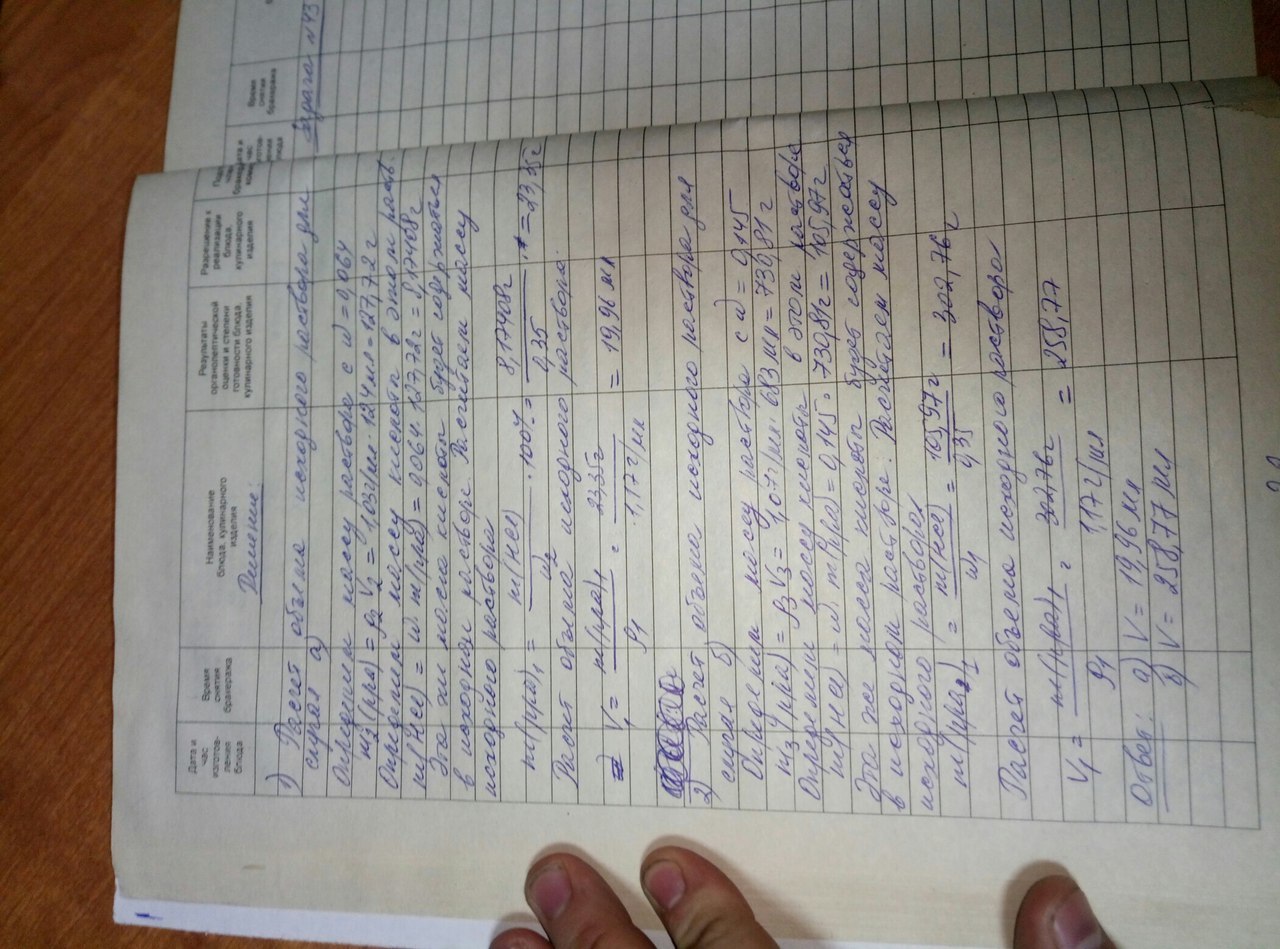 Дата и час изготовления блюда
Время снятия бракеража
Наименование блюда, кулинарного изделия
Результаты органолептической оценки и степени готовности блюда, кулинарного изделия
Разрешение к реализации блюда, кулинарного изделия
Решение:
1) Расчет объема исходного раствора для
случая а)
Определим массу раствора с ω = 0,064
m₂(рра) = ρ₂ V₂ = 1,03г/мл · 124мл = 127,72 г
Определим массу кислоты в этом раств.
m(HCl) = ω · m(рра) = 0,064 · 127,72г = 8,17408г
Эта же масса кислоты будет содержатся
в исходном растворе. Расчитаем массу
исходного раствора
m(рра)₁ = m(HCl) / ω₂ · 100% = 8,17408г / 0,35 = 23,35г
Расчет объема исходного раствора:
V₁ = m(рра)₁ / ρ₁ = 23,35г / 1,17г/мл = 19,96 мл
2) Расчет объема исходного раствора для
случая б)
Определим массу раствора с ω = 0,145
m₃(рра) = ρ₃ V₃ = 1,07г/мл · 683 мл = 730,81 г
Определим массу кислоты в этом растворе
m(HCl) = ω · m(рра) = 0,145 · 730,81г = 105,97г
Эта же масса кислоты будет содержаться
в исходном растворе. Расчитаем массу
исходного раствора
m(рра)₁ = m(HCl) / ω₁ = 105,97г / 0,35 = 302,76г
Расчет объема исходного раствора
V₁ = m(рра)₁ / ρ₁ = 302,76г / 1,17г/мл = 258,77
Ответ: а) V = 19,96 мл
б) V = 258,77 мл
Время снятия бракеража
N43